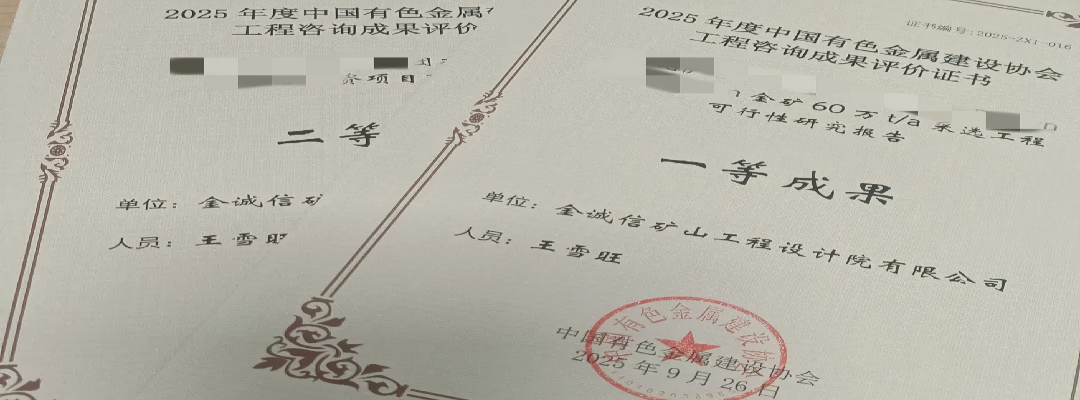 2025 年度中国有色金属
工程咨询成果评价
条项目
二等
单位：金诚信矿
人员：王雪旺
证书编号：2025-ZX1-016
2025 年度中国有色金属建设协会
工程咨询成果评价证书
金矿 60 万 t/a 采选工程
可行性研究报告
一等成果
单位：金诚信矿山工程设计院有限公司
人员：王雪旺
中国有色金属建设协会
2025 年 9 月 26 日
有色金属建设协